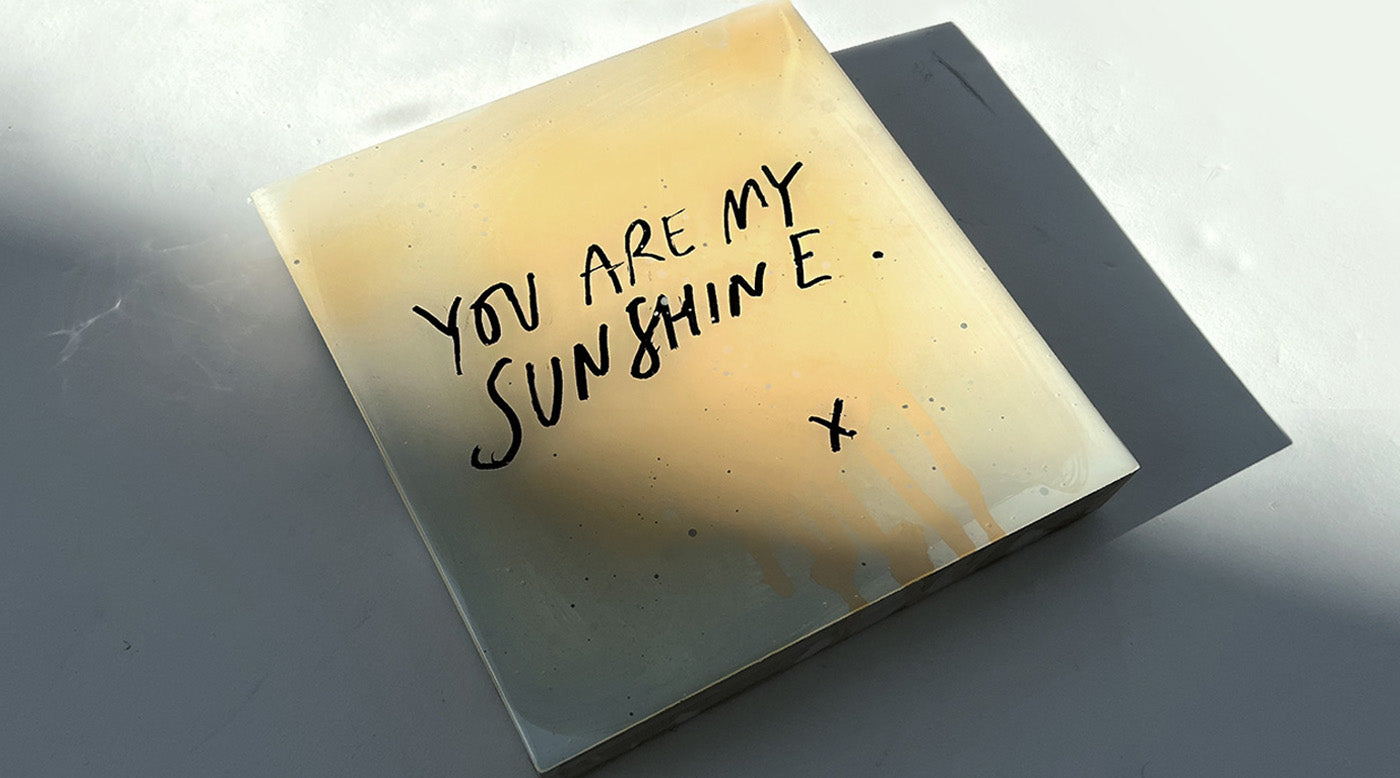 YOU ARE MY
SUNSHINE.
X